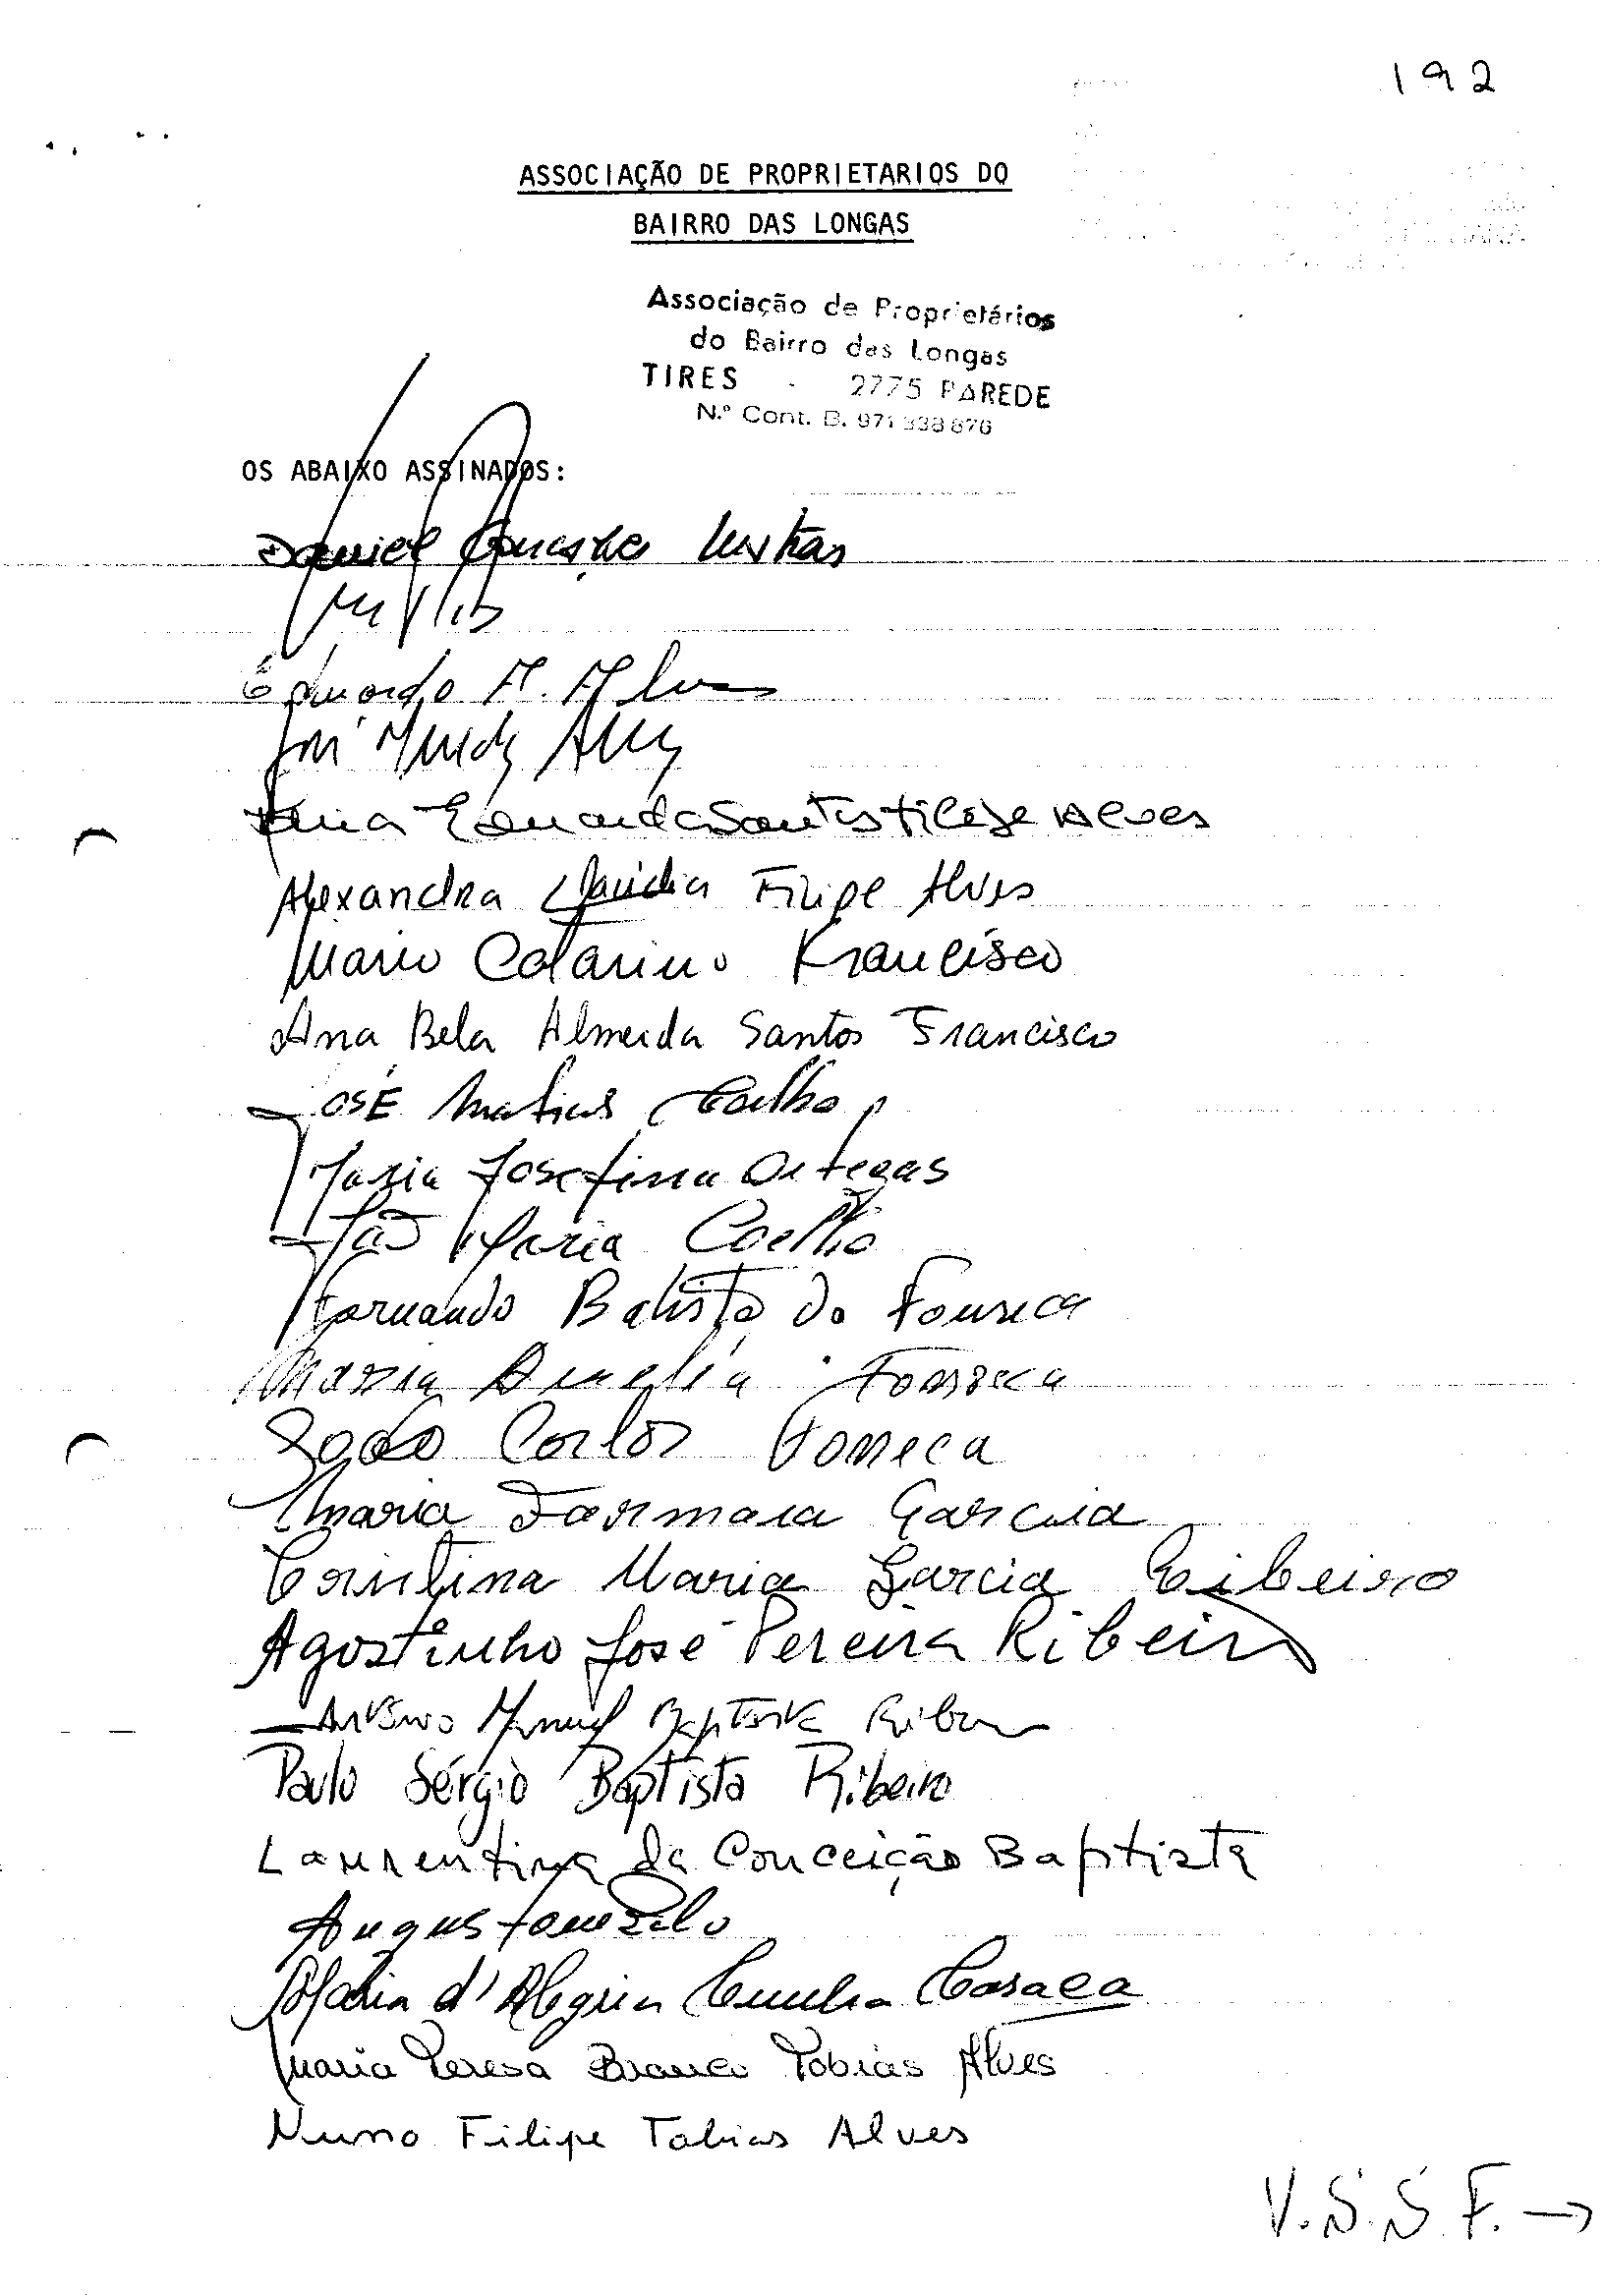 192
ASSOCIAÇÃO DE PROPRIETARIOS DO
BAIRRO DAS LONGAS
Associação de Proprietários
do Bairro das Longas
TIRES - 2775 PAREDE
N.º Cont. B. 971 338 876
OS ABAIXO ASSINADOS:
Daniel
Eduardo A. Alves
José Alves
Eduarda Santos Filipe Alves
Alexandra Claúdia Filipe Alves
Mario Catarino Francisco
Ana Bela Almeida Santos Francisco
JOSÉ Matias Coelho
Maria Josefina Ortegas
Maria Coelho
Fernando Batista da Fonseca
Maria Amelia Fonseca
João Carlos Fonseca
Maria Garcia
Cristina Maria Garcia Ribeiro
Agostinho José Pereira Ribeiro
António Manuel Baptista Ribeiro
Paulo Sérgio Baptista Ribeiro
Laurentina da Conceição Baptista
Augusto
Maria d'Alegria Cunha Casaca
Maria Teresa Branco Tobias Alves
Nuno Filipe Tobias Alves
V.S.S.F. →